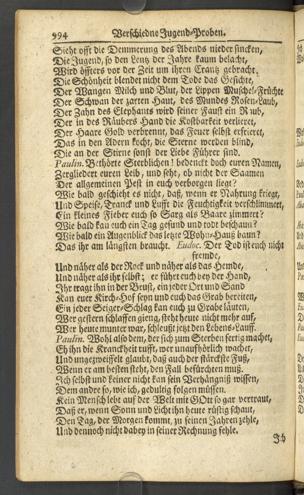 994 Verschiedne Jugend-Proben.
Sieht offt die Demmerung des Abends nieder sincken,
Die Jugend, so den Lentz der Jahre kaum belacht,
Wird öffters vor der Zeit um ihren Crantz gebracht,
Die Schönheit blendet nicht dem Tode das Gesichte,
Der Wangen Milch und Blut, der Lippen Muschel-Früchte
Der Schwan der zarten Haut, des Mundes Rosen-Laub,
Der Zahn des Elephants wird seiner Faust ein Raub,
Der in des Räubers Hand die Kostbarkeit verlieret,
Der Haare Gold verbrennt, das Feuer selbst erfrieret,
Das in den Adern kocht, die Sterne werden blind,
Die an der Stirne sonst der Liebe Führer sind.
Paulin. Bethörte Sterblichen! bedenckt doch euren Namen,
Zergliedert euren Leib, und seht, ob nicht der Saamen
Der allgemeinen Pest in euch verborgen liegt?
Wie bald geschieht es nicht, daß, wenn er Nahrung kriegt,
Und Speise, Tranck und Lufft die Feuchtigkeit verschlimmert,
Ein kleines Fieber euch so Sarg als Baare zimmert?
Wie bald kan euch ein Tag gesund und todt beschaun?
Wie bald ein Augenblick das letzte Wohn-Hauß baun?
Das ihr am längsten braucht. Eudoc. Der Tod ist euch nicht
fremde,
Und näher als der Rock und näher als das Hemde,
Und näher als ihr selbst; er führet euch bey der Hand,
Ihr tragt ihn in der Brust, ein jeder Ort und Sand
Kan euer Kirch-Hof seyn und euch das Grab bereiten,
Ein jeder Seiger-Schlag kan euch zu Grabe läuten,
Wer gestern schlaffen gieng, steht heute nicht mehr auf,
Wer heute munter war, schleußt jetzt den Lebens-Lauff.
Paulin. Wohl also dem, der sich zum Sterben fertig machet,
Eh ihn die Kranckheit rufft, wer unaufhörlich wachet,
Und ungezweiffelt glaubt, daß auch der stärckste Fuß,
Wenn er am besten steht, den Fall befürchten muß.
Ich selbst und keiner nicht kan sein Verhängniß wissen,
Dem andre so, wie ich, gedultig folgen müssen.
Kein Mensch lebt auf der Welt mit GOtt so gar vertraut,
Daß er, wenn Sonn und Licht ihn heute rüstig schaut,
Den Tag, der Morgen kommt, zu seinen Jahren zehle,
Und dennoch nicht dabey in seiner Rechnung fehle.
Ich